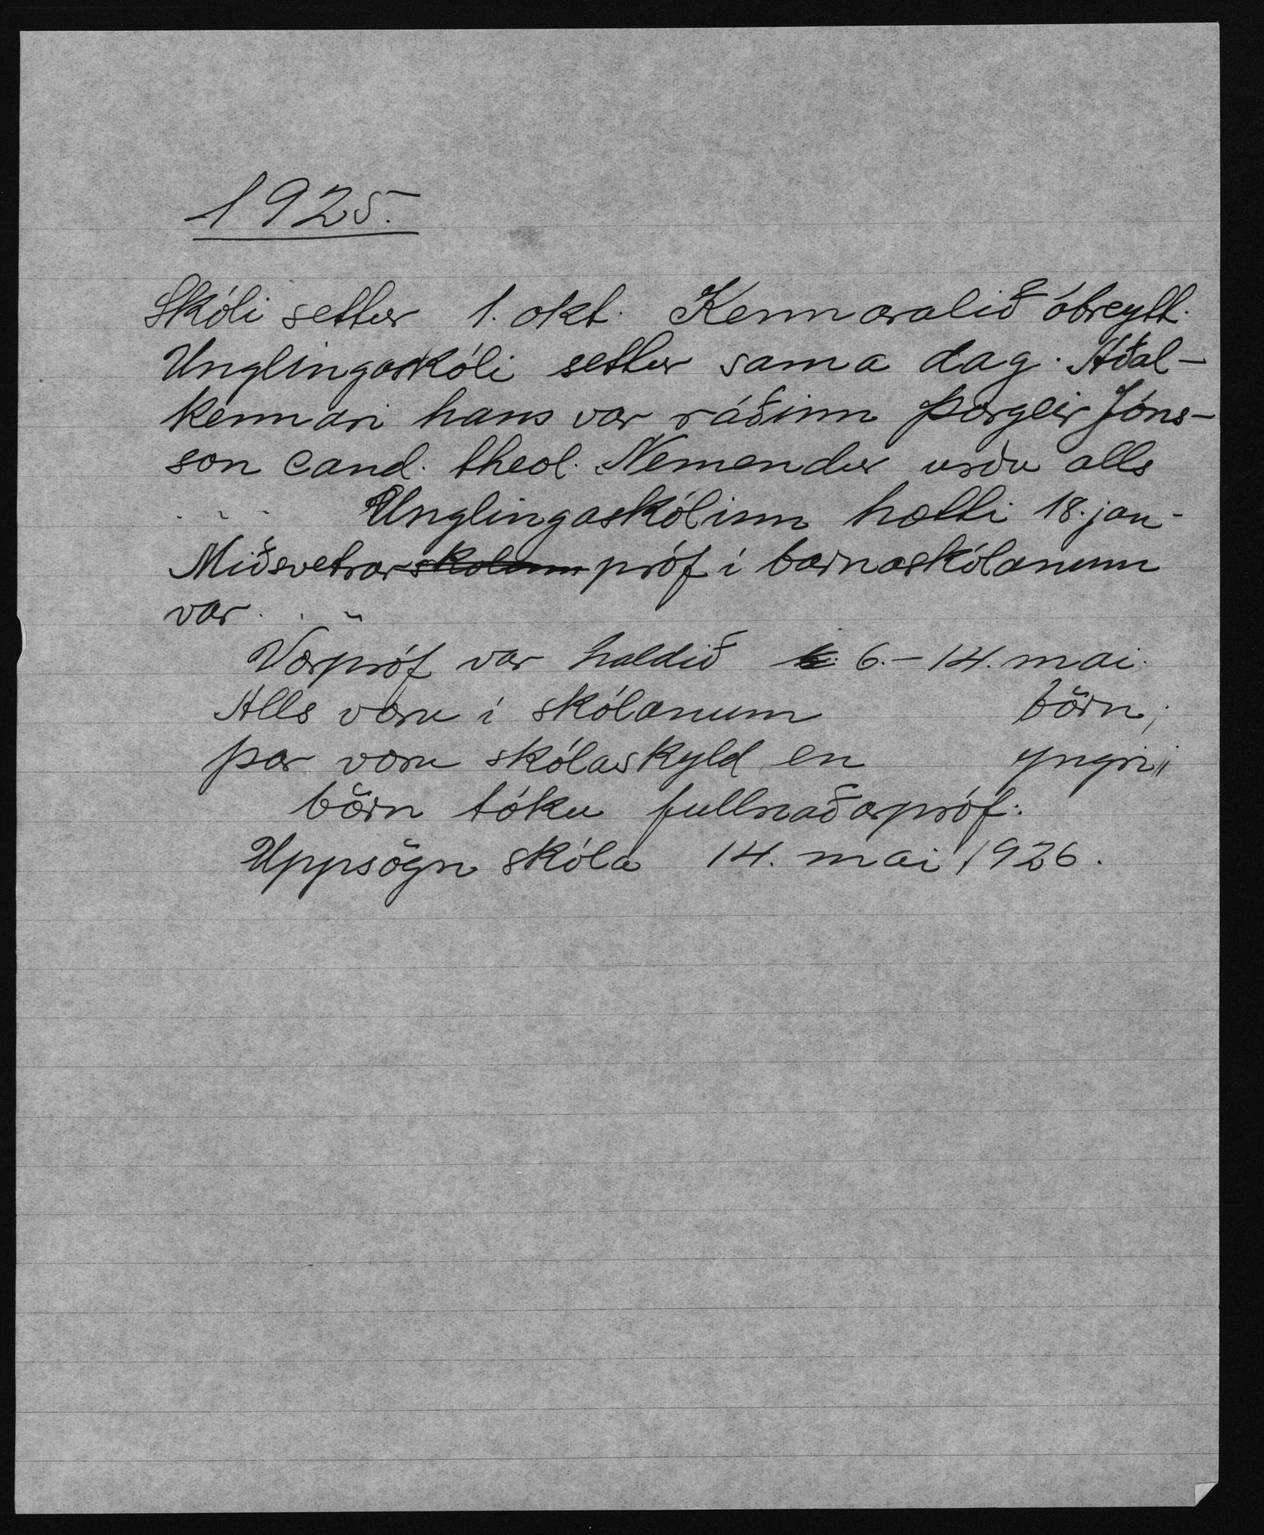 1925.
Skóli settur 1. okt. Kennaralið óbreytt.
Unglingaskóli settur sama dag. Aðal-
kennari hans var ráðinn Þorgeir Jóns-
son cand. theol. Nemendur urðu alls
Unglingaskólinn hætti 18. jan-
Miðsvetrarskólinn próf í barnaskólanum
var
Vorpróf var haldið 6.-14. mai.
Alls voru í skólanum börn,
þar voru skólaskyld en yngri,
börn tóku fullnaðarpróf.
Uppsögn skóla 14. mai 1926.